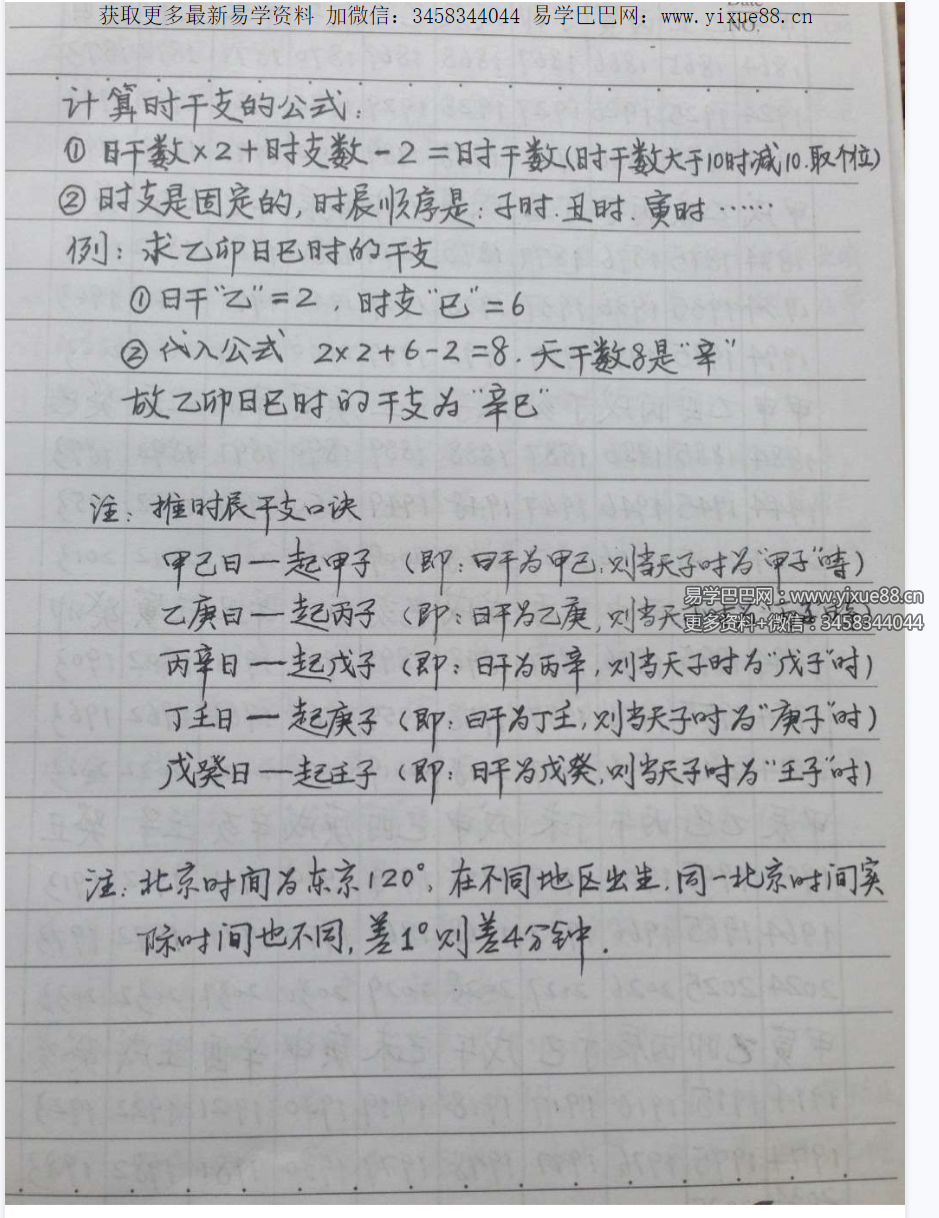 获取更多最新易学资料 加微信：3458344044 易学巴巴网：www.yixue88.cn
NO.
计算时干支的公式：
① 日干数×2+时支数-2=时干数(时干数大于10时减10.取个位)
② 时支是固定的，时辰顺序是：子时.丑时.寅时……
例：求乙卯日巳时的干支
①日干"乙"=2 时支"巳"=6
②代入公式 2×2+6-2=8. 天干数8是"辛"
故乙卯日巳时的干支为"辛巳"
注：推时辰干支口诀
甲己日一起甲子（即：日干为甲己，则当天子时为"甲子"时）
易学巴巴网：www.yixue88.cn
乙庚日一起丙子（即：日干为乙庚，则当天
更多资料+微信：3458344044
丙辛日一起戊子（即：日干为丙辛，则当天子时为"戊子"时）
丁壬日一起庚子（即：日干为丁壬，则当天子时为"庚子"时）
戊癸日一起壬子（即：日干为戊癸，则当天子时为"壬子"时）
注：北京时间为东京120°，在不同地区出生，同一北京时间实
际时间也不同，差1°则差4分钟.